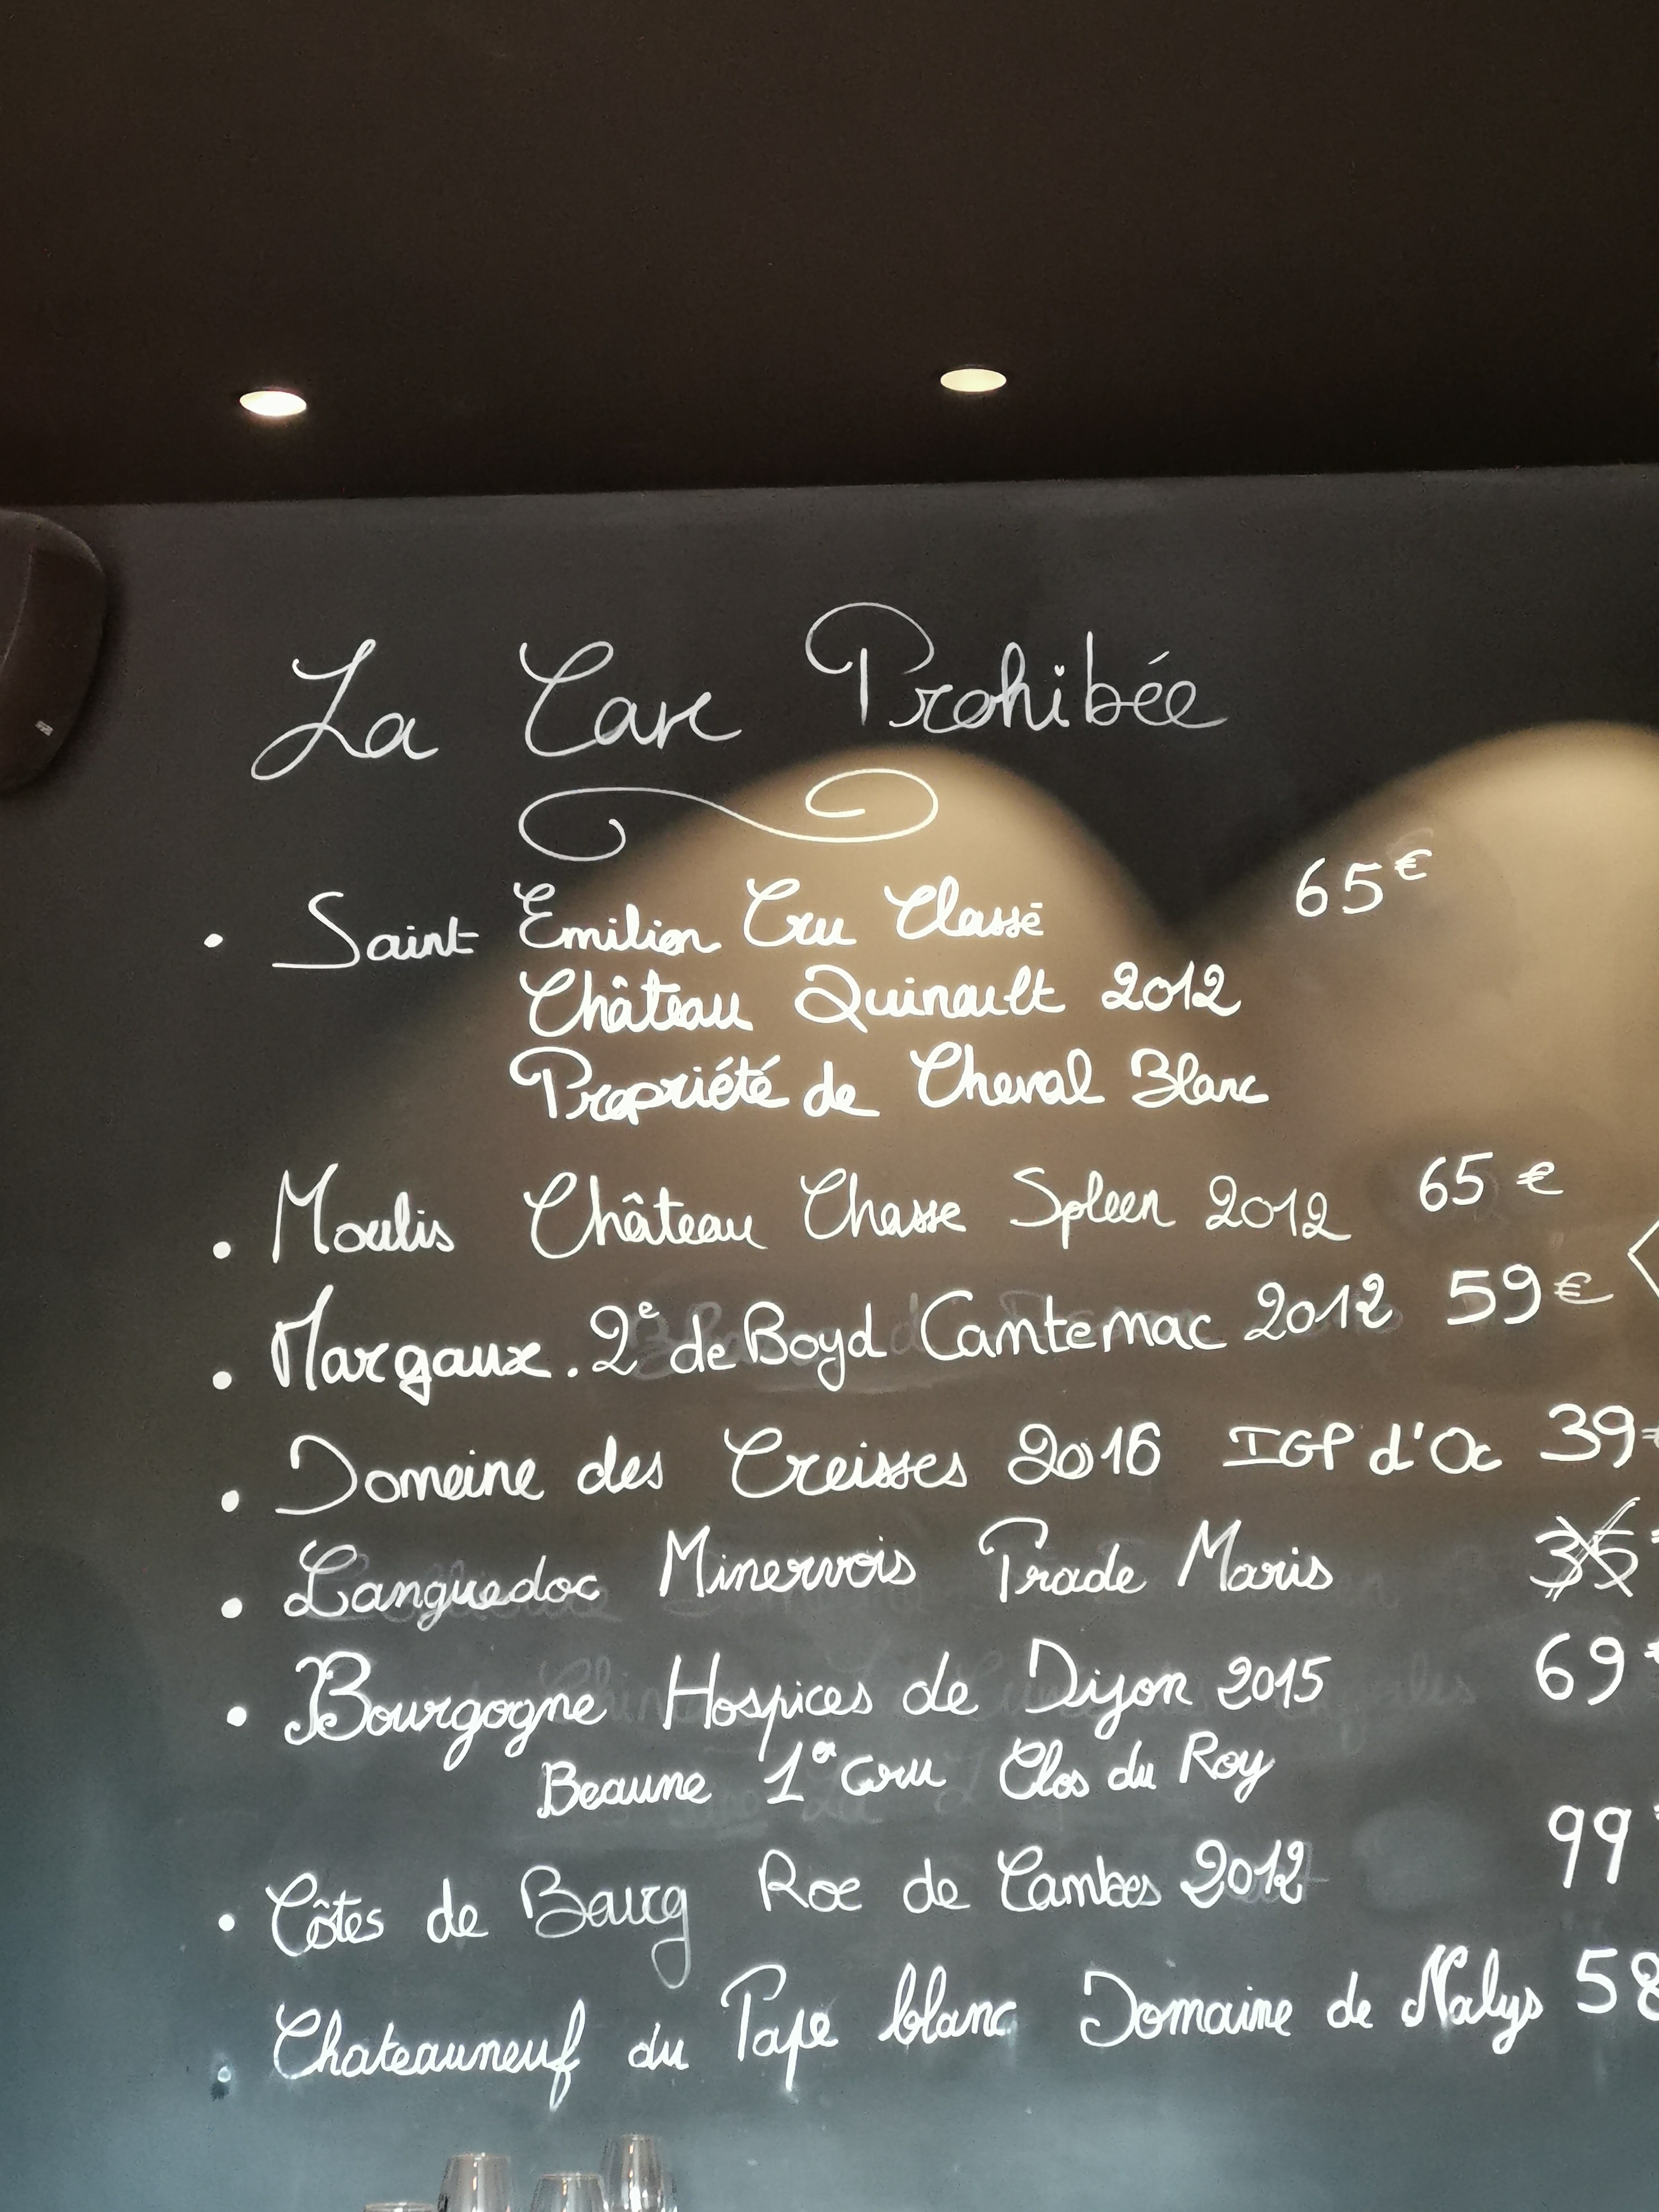 La Cave Prohibée
• Saint Emilion Cru Classé 65€
Château Quinault 2012
Propriété de Cheval Blanc
• Moulis Château Chasse Spleen 2012 65€
• Margaux. 2e de Boyd Cantenac 2012 59€
• Domaine des Creisses 2016 IGP d'Oc 39€
• Languedoc Minervois Trade Maris 35
• Bourgogne Hospices de Dijon 2015 69
Beaune 1er Cru Clos du Roy
• Côtes de Bourg Roc de Cambes 2012 99
• Chateauneuf du Pape blanc Domaine de Nalys 58